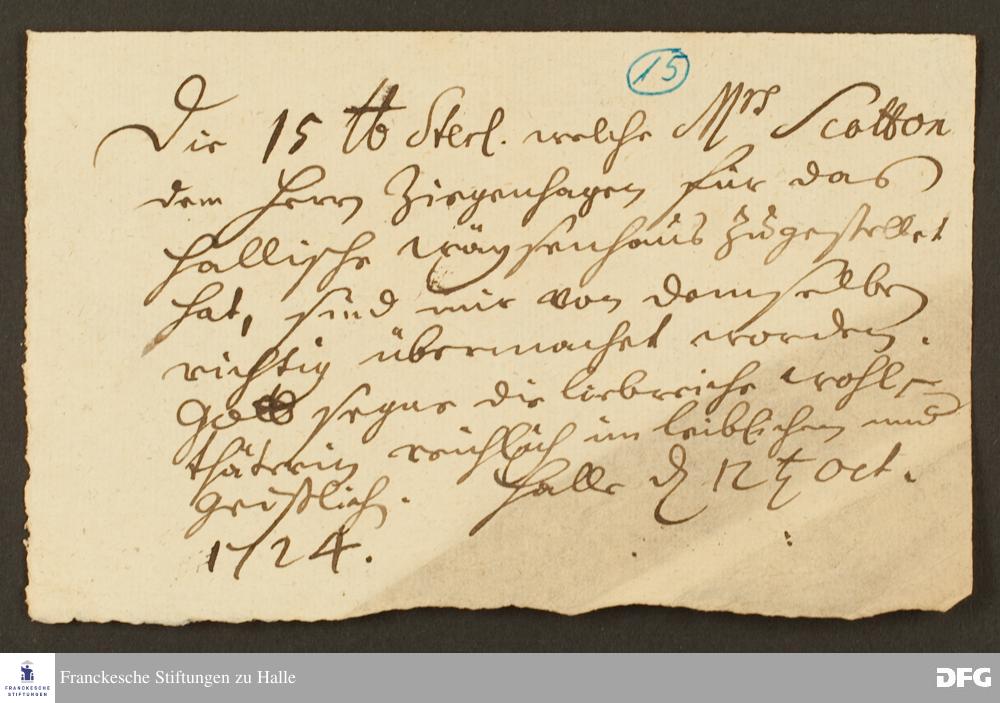 15
Die 15 ℔ Sterl. welche Mrs Scatton
dem Herrn Ziegenhagen für das
Hallische Wäysenhaus zugestellet
hat, sind mir von demselben
richtig übermachet worden.
Gott segne die liebreiche Wohl-
thäterin reichlich im leiblichen und
geistlichen. Halle d 12t Oct.
1724.
FRANCKESCHE
STIFTUNGEN
Franckesche Stiftungen zu Halle
DFG